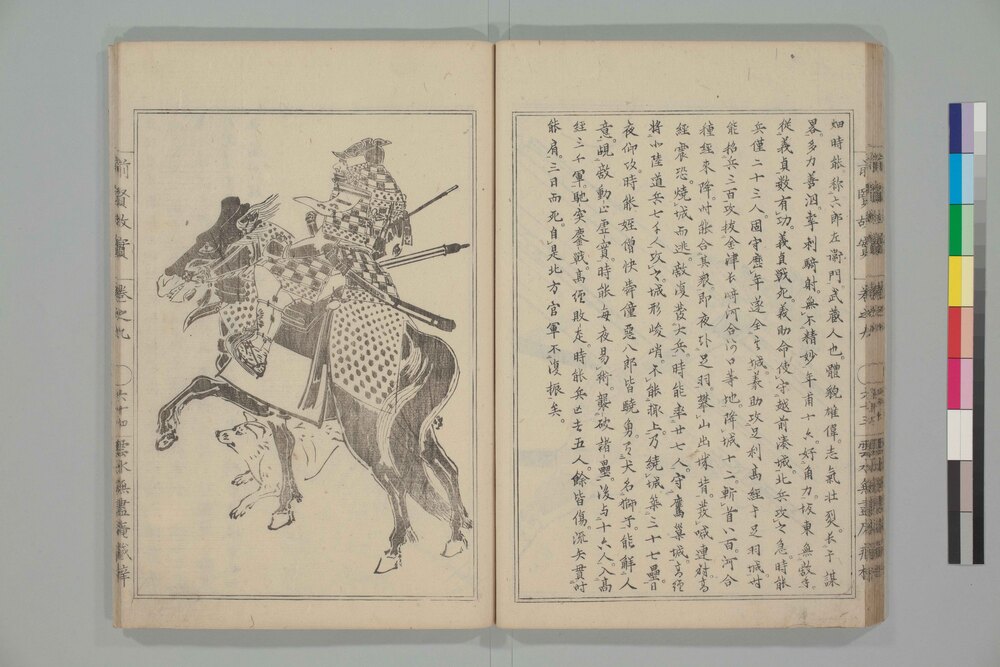 畑時能。称六郎左衛門。武蔵人也。體貌雄偉。志氣壮烈。長于謀
畧。多力善泅。牽利騎射。無不精妙。年甫十六。好角力。坂東無敵手。
從義貞数有功。義貞戦死。義助命使守越前湊城。北兵攻之急。時能
兵僅二十三人。固守歴年。遂全其城。義助攻足利高經于足羽城。時
能招兵三百。攻抜金津長﨑河合川口等地。降城十二。斬首八百。河合
種經來降。時能合其衆。即夜
經震恐。燒城而逃。敵復發大兵。時能率廿七人。守鷹巢城。高經
將北陸道兵七千人攻之。城形峻峭。不能攻上。乃繞城築三十七壘。日
夜仰攻。時能姪僧快舜。僮惡八郎。皆驍勇。有犬名獅子。能解人
意。覘敵動止虚實。時能毎夜易術。襲砍諸壘。後与十六人入高
經三千軍。馳突鏖戦。高經敗走。時能兵亡者五人。餘皆傷。流矢貫時
能肩。三日而死。自是北方官軍不復振矣。
前賢故實
巻之九
六十四
雲水無盡庵藏梓